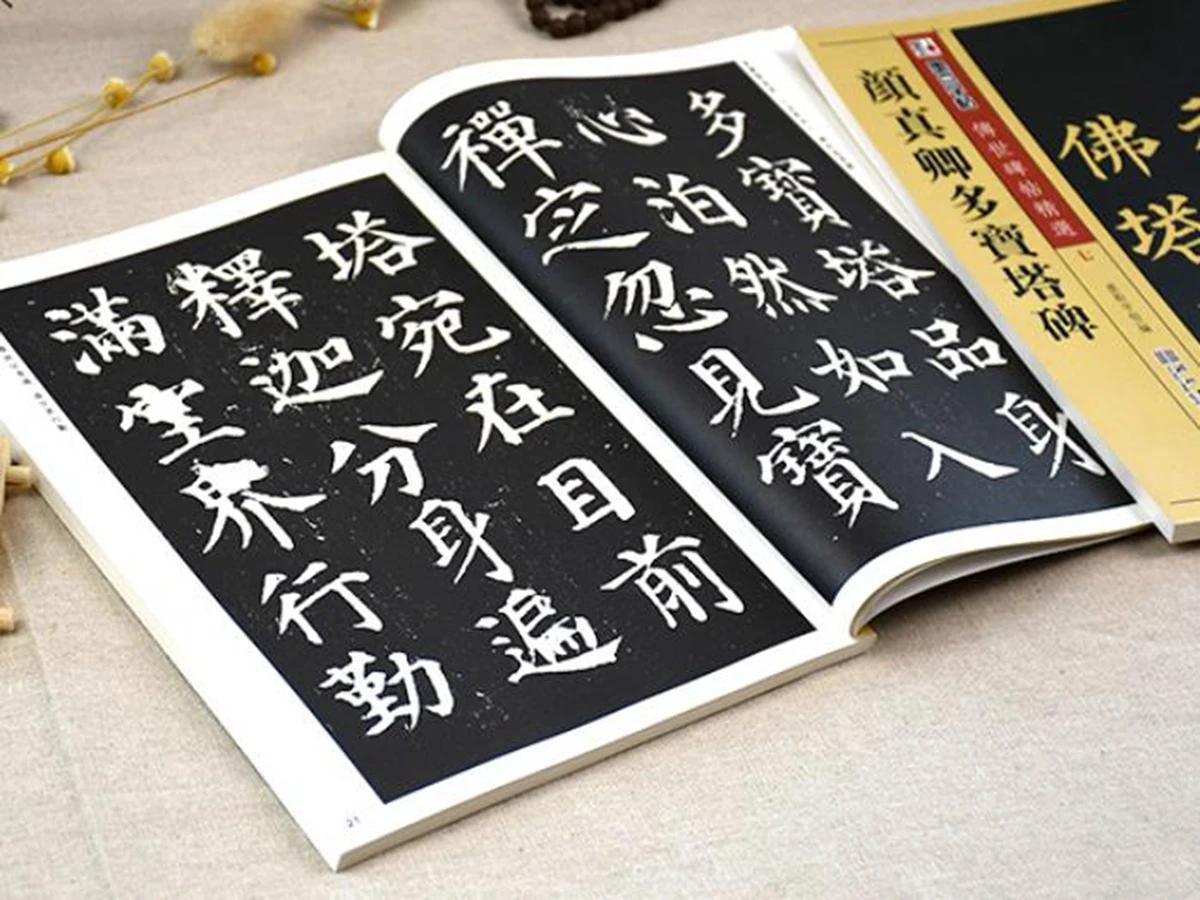 多寶塔品身
心泊然如入
禪定忽見寶
塔宛在目前
釋迦分身遍
滿空界行勤
21
佛塔
傳世碑帖精選
七
顔真卿多寶塔碑